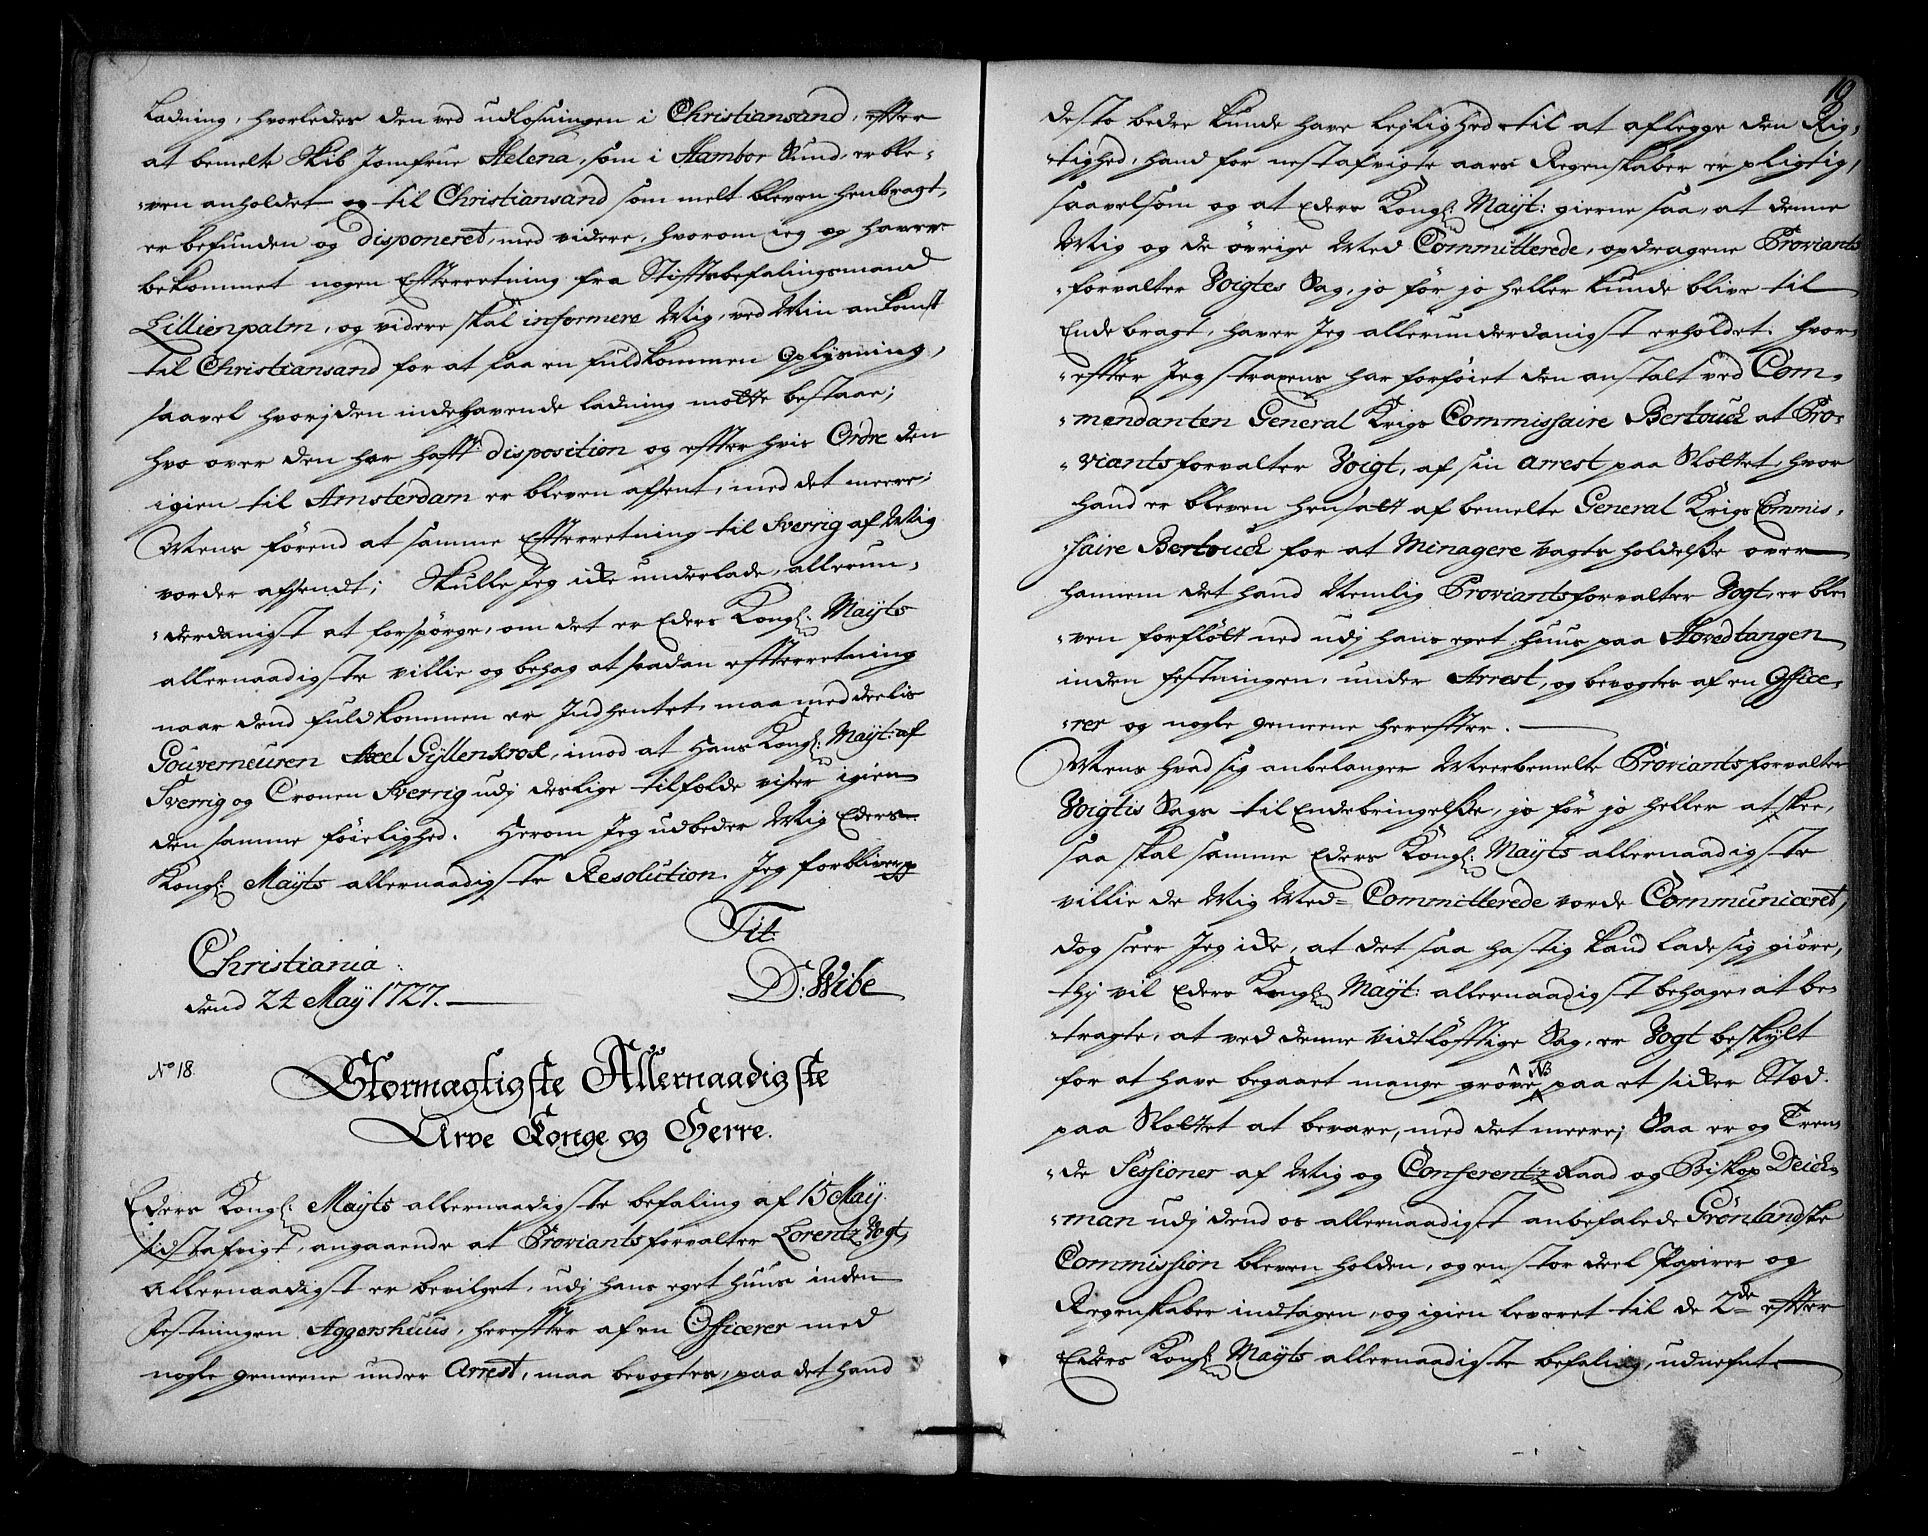 Ladning, hvorledes den ved udlosningen i Christiansand, efter
at bemelte Skib Jomfrue Helena, som i Hambor Sund, er ble-
ven anholdet og til Christiansand som melt bleven henbragt,
er befunden og disponeret, med videre, hvorom ieg og haver
bekommet nogen Effterretning fra Stifftsbefalingsmand
Lillienpalm, og videre skal informere Mig, ved Min ankomst
til Christiansand for at faa en fuldkommen Oplysning,
saavel hvorj den indehavende ladning motte bestaae;
hvo over den har hafft disposition og effter hvis Ordre den
igien til Amsterdam er bleven afsent, med det meere;
Mens førend at samme Effterretning til Sverrig af Mig
vorder afsendt; Skulle Jeg icke underlade, allerun-
derdanigst at forspørge, om det er Eders Kongl: Mayts
allernaadigste villie og behag at saadan effterretning
naar dend fuldkommen er Indhentet, maa meddeelis
Gouverneuren Axel Gyllenkrok, imod at Hans Kongl: Mayt: af
Sverrig og Cronen Sverrig udj deslige tilfælde viser igien
den samme føielighed. Herom Jeg udbeder Mig Eders
Kongl: Mayts allernaadigste Resolution. Jeg forbliver
Tit:
Christiania:
D: Wibe
dend 24 May 1727.
No 18.
Stormægtigste Allernaadigste
Arve Konge og Herre.
Eders Kongl: Mayts allernaadigste befaling af 15 May
sidstafvigt, angaaende at Proviantsforvalter Lorentz Vogt,
allernaadigst er bevilget, udj hans eget huus inden
Festningen Aggershuus, hereffter af en Officerer med
nogle gemeene under Arrest, maa bevogtes, paa det hand
19
desto bedre kunde have lejlighed til at aflegge den Rig-
tighed, hand for nestafvigte aars Regenskaber er pligtig,
saavelsom og at Eders Kongl: Mayt: gierne saa, at denne
Mig og de øvrige Med Committerede, opdragene Proviants
forvalter Voigtes Sag, jo før jo heller kunde blive til
Ende bragt, haver Jeg allerunderdanigst erholdet. hvor-
effter Jeg straxens har forføiet den anstalt ved Com-
mendanten General Krigs Commissaire Bertouch at Pro-
viantsforvalter Voigt, af sin arrest paa Slottet, hvor
hand er bleven hensatt af bemelte General Krigs Commis-
saire Bertouch for at Minagere Vagts holdelsse over
hannem det hand Nemlig Proviantsforvalter Vogt, er ble-
ven forfløtt ned udj hans eget huus paa Hovedtangen
inden Festningen, under Arrest, og bevogtes af en Office-
rer og nogle gemeene hereffter.
Mens hvad sig anbelanger Meerbemelte Proviantsforvalter
Voigtis Sags til Endebringelsse, jo før jo heller at skee,
saa skal samme Eders Kongl: Mayts allernaadigste
villie de Mig Med-Committerede vorde Communiceret,
dog seer Jeg icke, at det saa hastig kand lade sig giøre,
thj vil Eders Kongl: Mayt: allernaadigst behage at be-
tragte, at ved denne vidtløfftige Sag, er Vogt beskylt
for at have begaaet mange grove NB paa et sicker Stæd.
paa Slottet at bevare, med det meere; Saa er og Tren-
de Sessioner af Mig og Conferentz Raad og Biskop Deich-
man udj dend os allernaadigst anbefalede Grønlandske
Commission bleven holden, og en stor deel Papirer og
Regenskaber indtagen, og igien leveret til de 2de effter
Eders Kongl: Mayts allernaadigste befaling, udnefnte